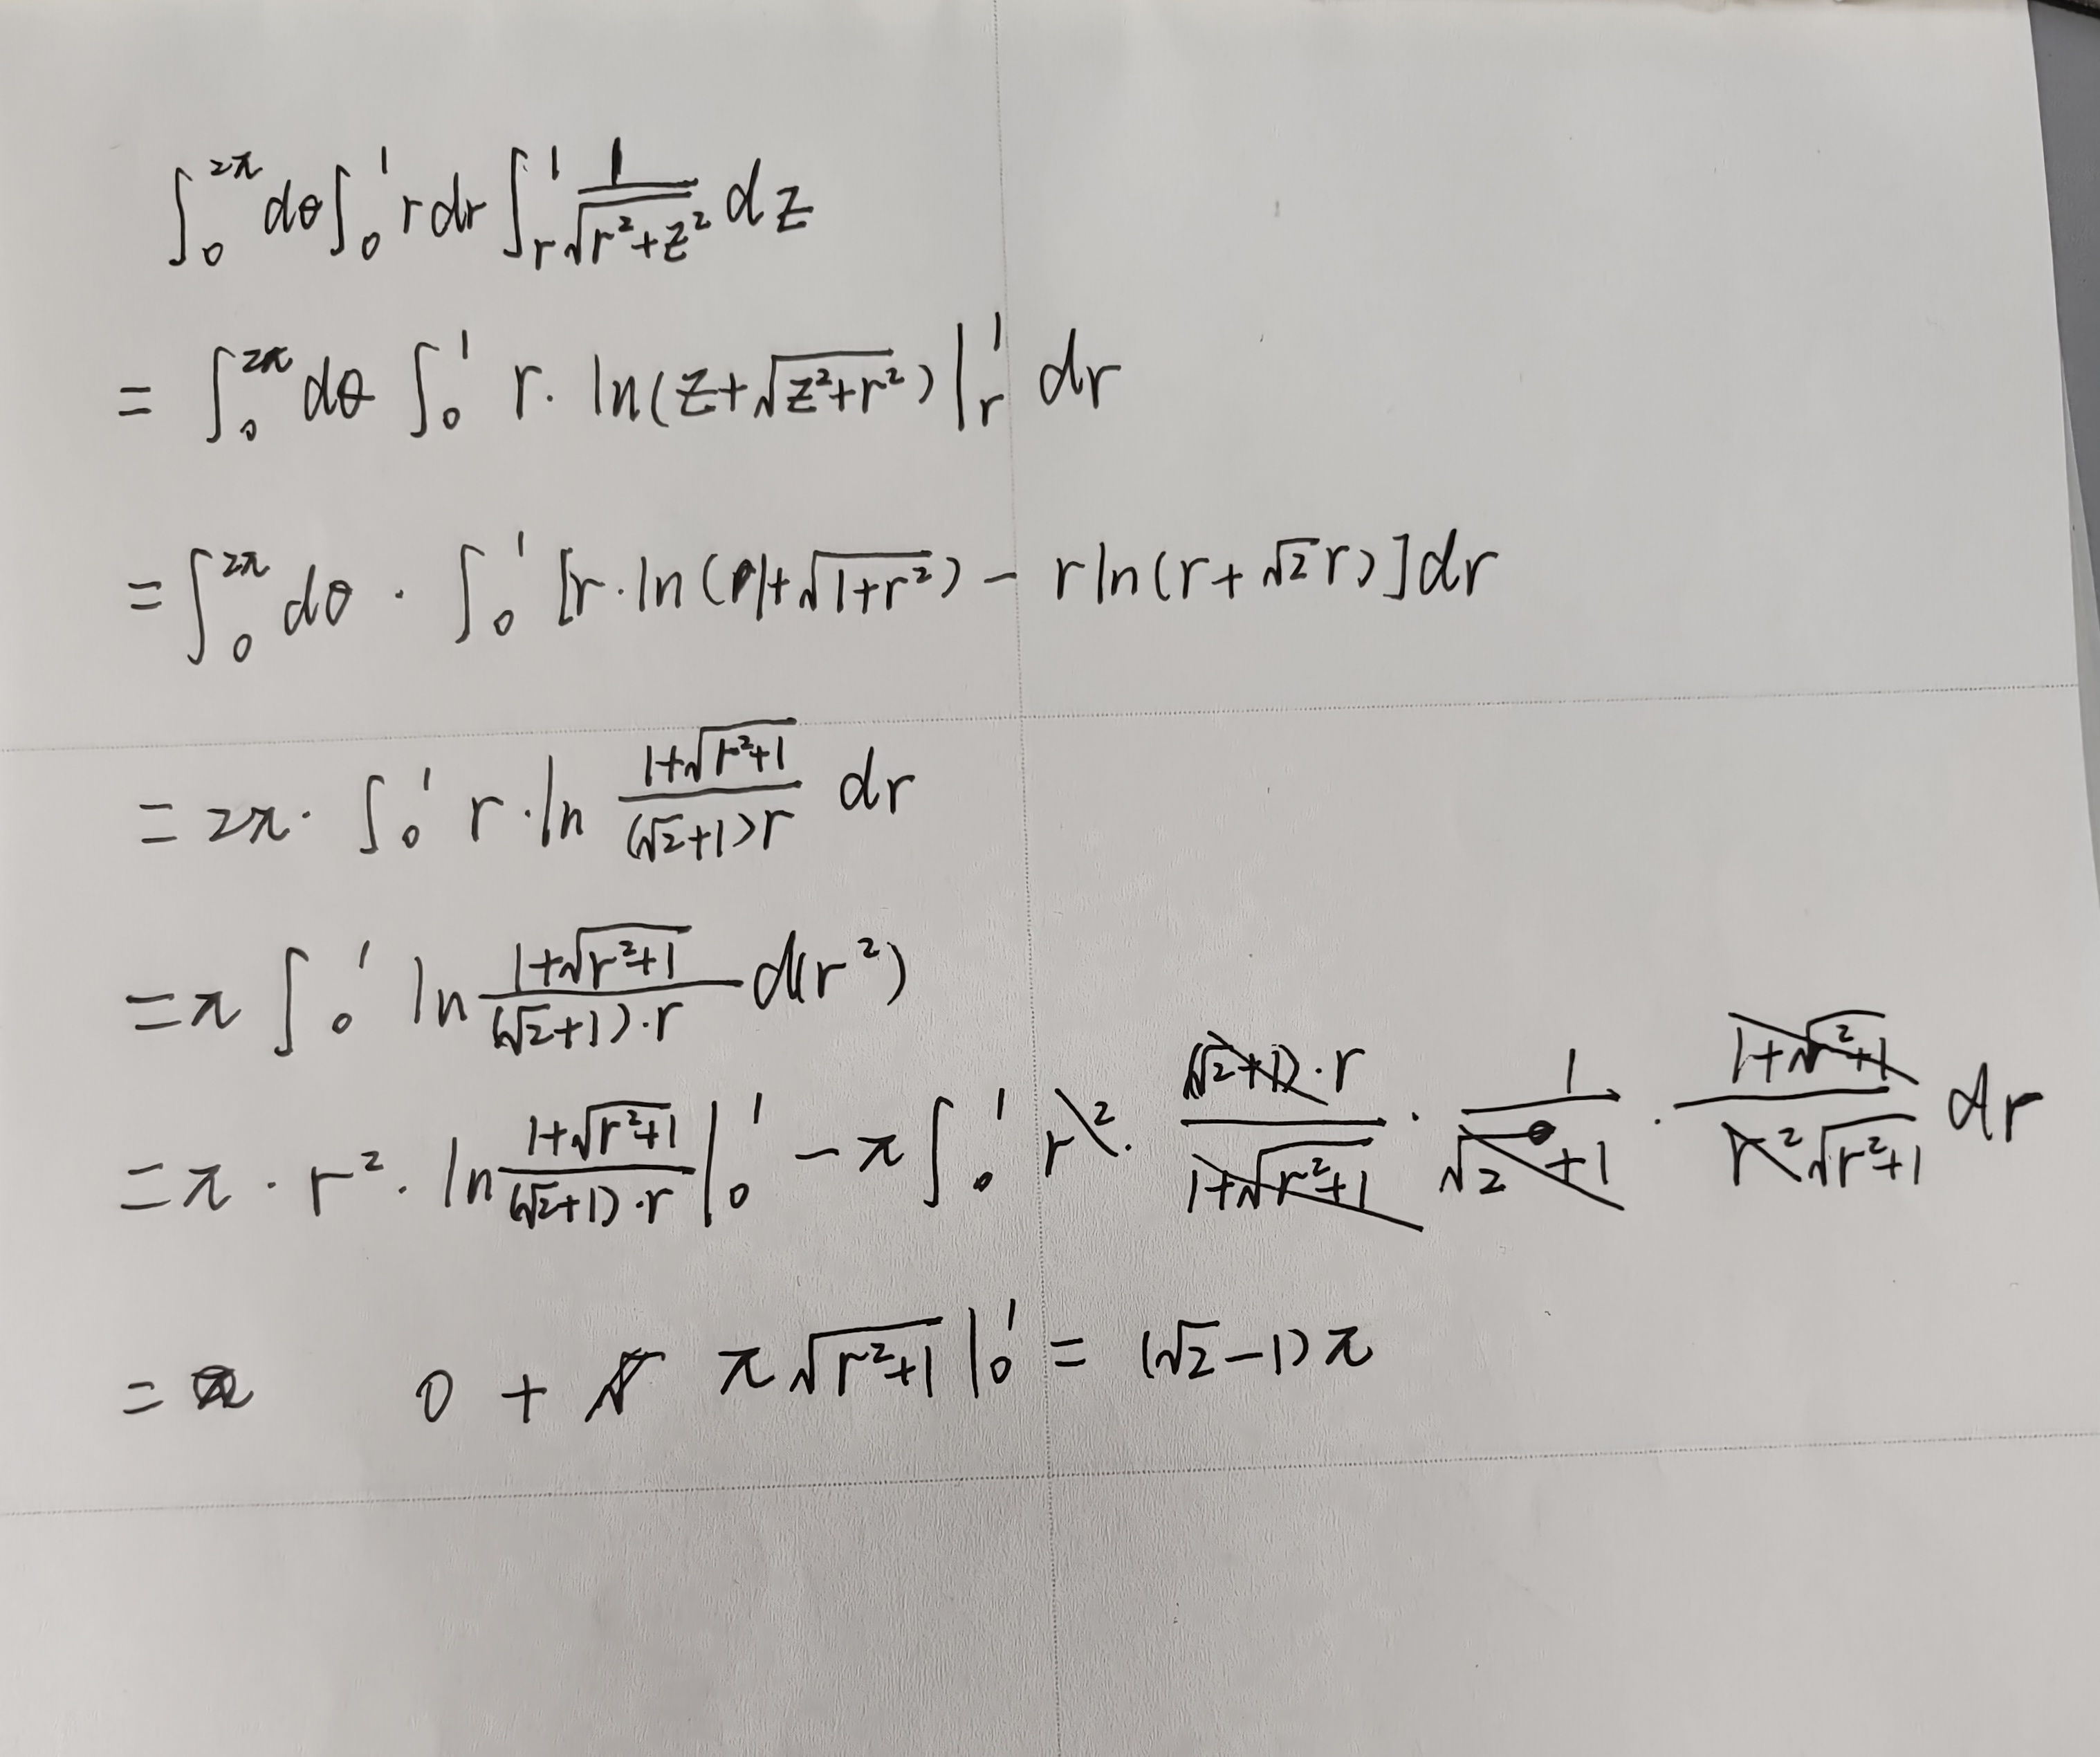 ∫₀^{2π} dθ ∫₀^1 r dr ∫_r^1 \frac{1}{\sqrt{r²+z²}} dz
= ∫₀^{2π} dθ ∫₀^1 r · ln(z+\sqrt{z²+r²}) |_r^1 dr
= ∫₀^{2π} dθ · ∫₀^1 [r · ln(1+\sqrt{1+r²}) − r ln(r+√2 r)] dr
= 2π · ∫₀^1 r · ln \frac{1+\sqrt{r²+1}}{(√2+1)r} dr
= π ∫₀^1 ln \frac{1+\sqrt{r²+1}}{(√2+1)·r} d(r²)
= π · r² · ln \frac{1+\sqrt{r²+1}}{(√2+1)·r} |₀^1 − π ∫₀^1 r² · \frac{(√2+1)·r}{1+\sqrt{r²+1}} · \frac{1}{√2+1} · \frac{1+\sqrt{r²+1}}{r²\sqrt{r²+1}} dr
= 0 + π \sqrt{r²+1} |₀^1 = (√2−1)π